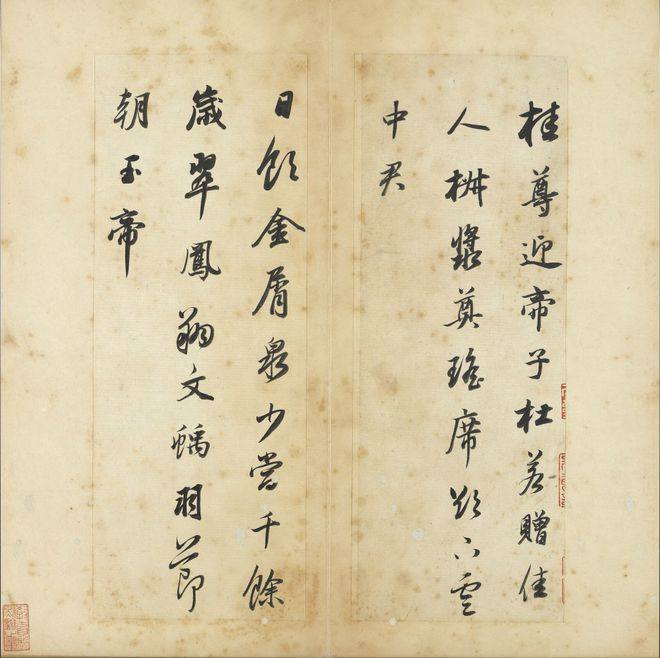 桂尊迎帝子杜若贈佳
人椒漿奠瑤席欲下雲
中君
日飲金屑泉少當千餘
歲翠鳳翔文螭羽節
朝玉帝